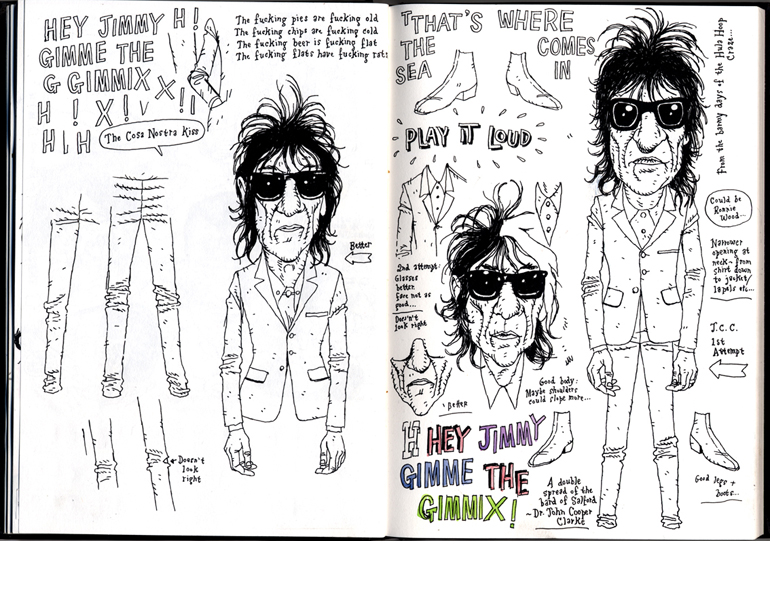 HEY JIMMY H!
GIMME THE
G GIMMIX X!!
H ! X! V
H I H
The Cosa Nostra Kiss
The fucking pies are fucking old
The fucking chips are fucking cold
The fucking beer is fucking flat
The fucking flats have fucking rats
Better
Doesn't
look
right
TTHAT'S WHERE
THE COMES
SEA IN
PLAY IT LOUD
From the barmy days of the Hula Hoop
Craze...
Could be
Ronnie
Wood...
Narrower
opening at
neck - from
shirt down
to jacket/
lapels etc...
J.C.C.
1st
Attempt
2nd attempt
Glasses
better
Face not as
good...
Doesn't
look right
Better
Good body:
Maybe shoulders
could slope more...
H HEY JIMMY
GIMME THE
GIMMIX!
A double
spread of the
bard of Salford
~ Dr. John Cooper
Clarke
Good legs +
boots...